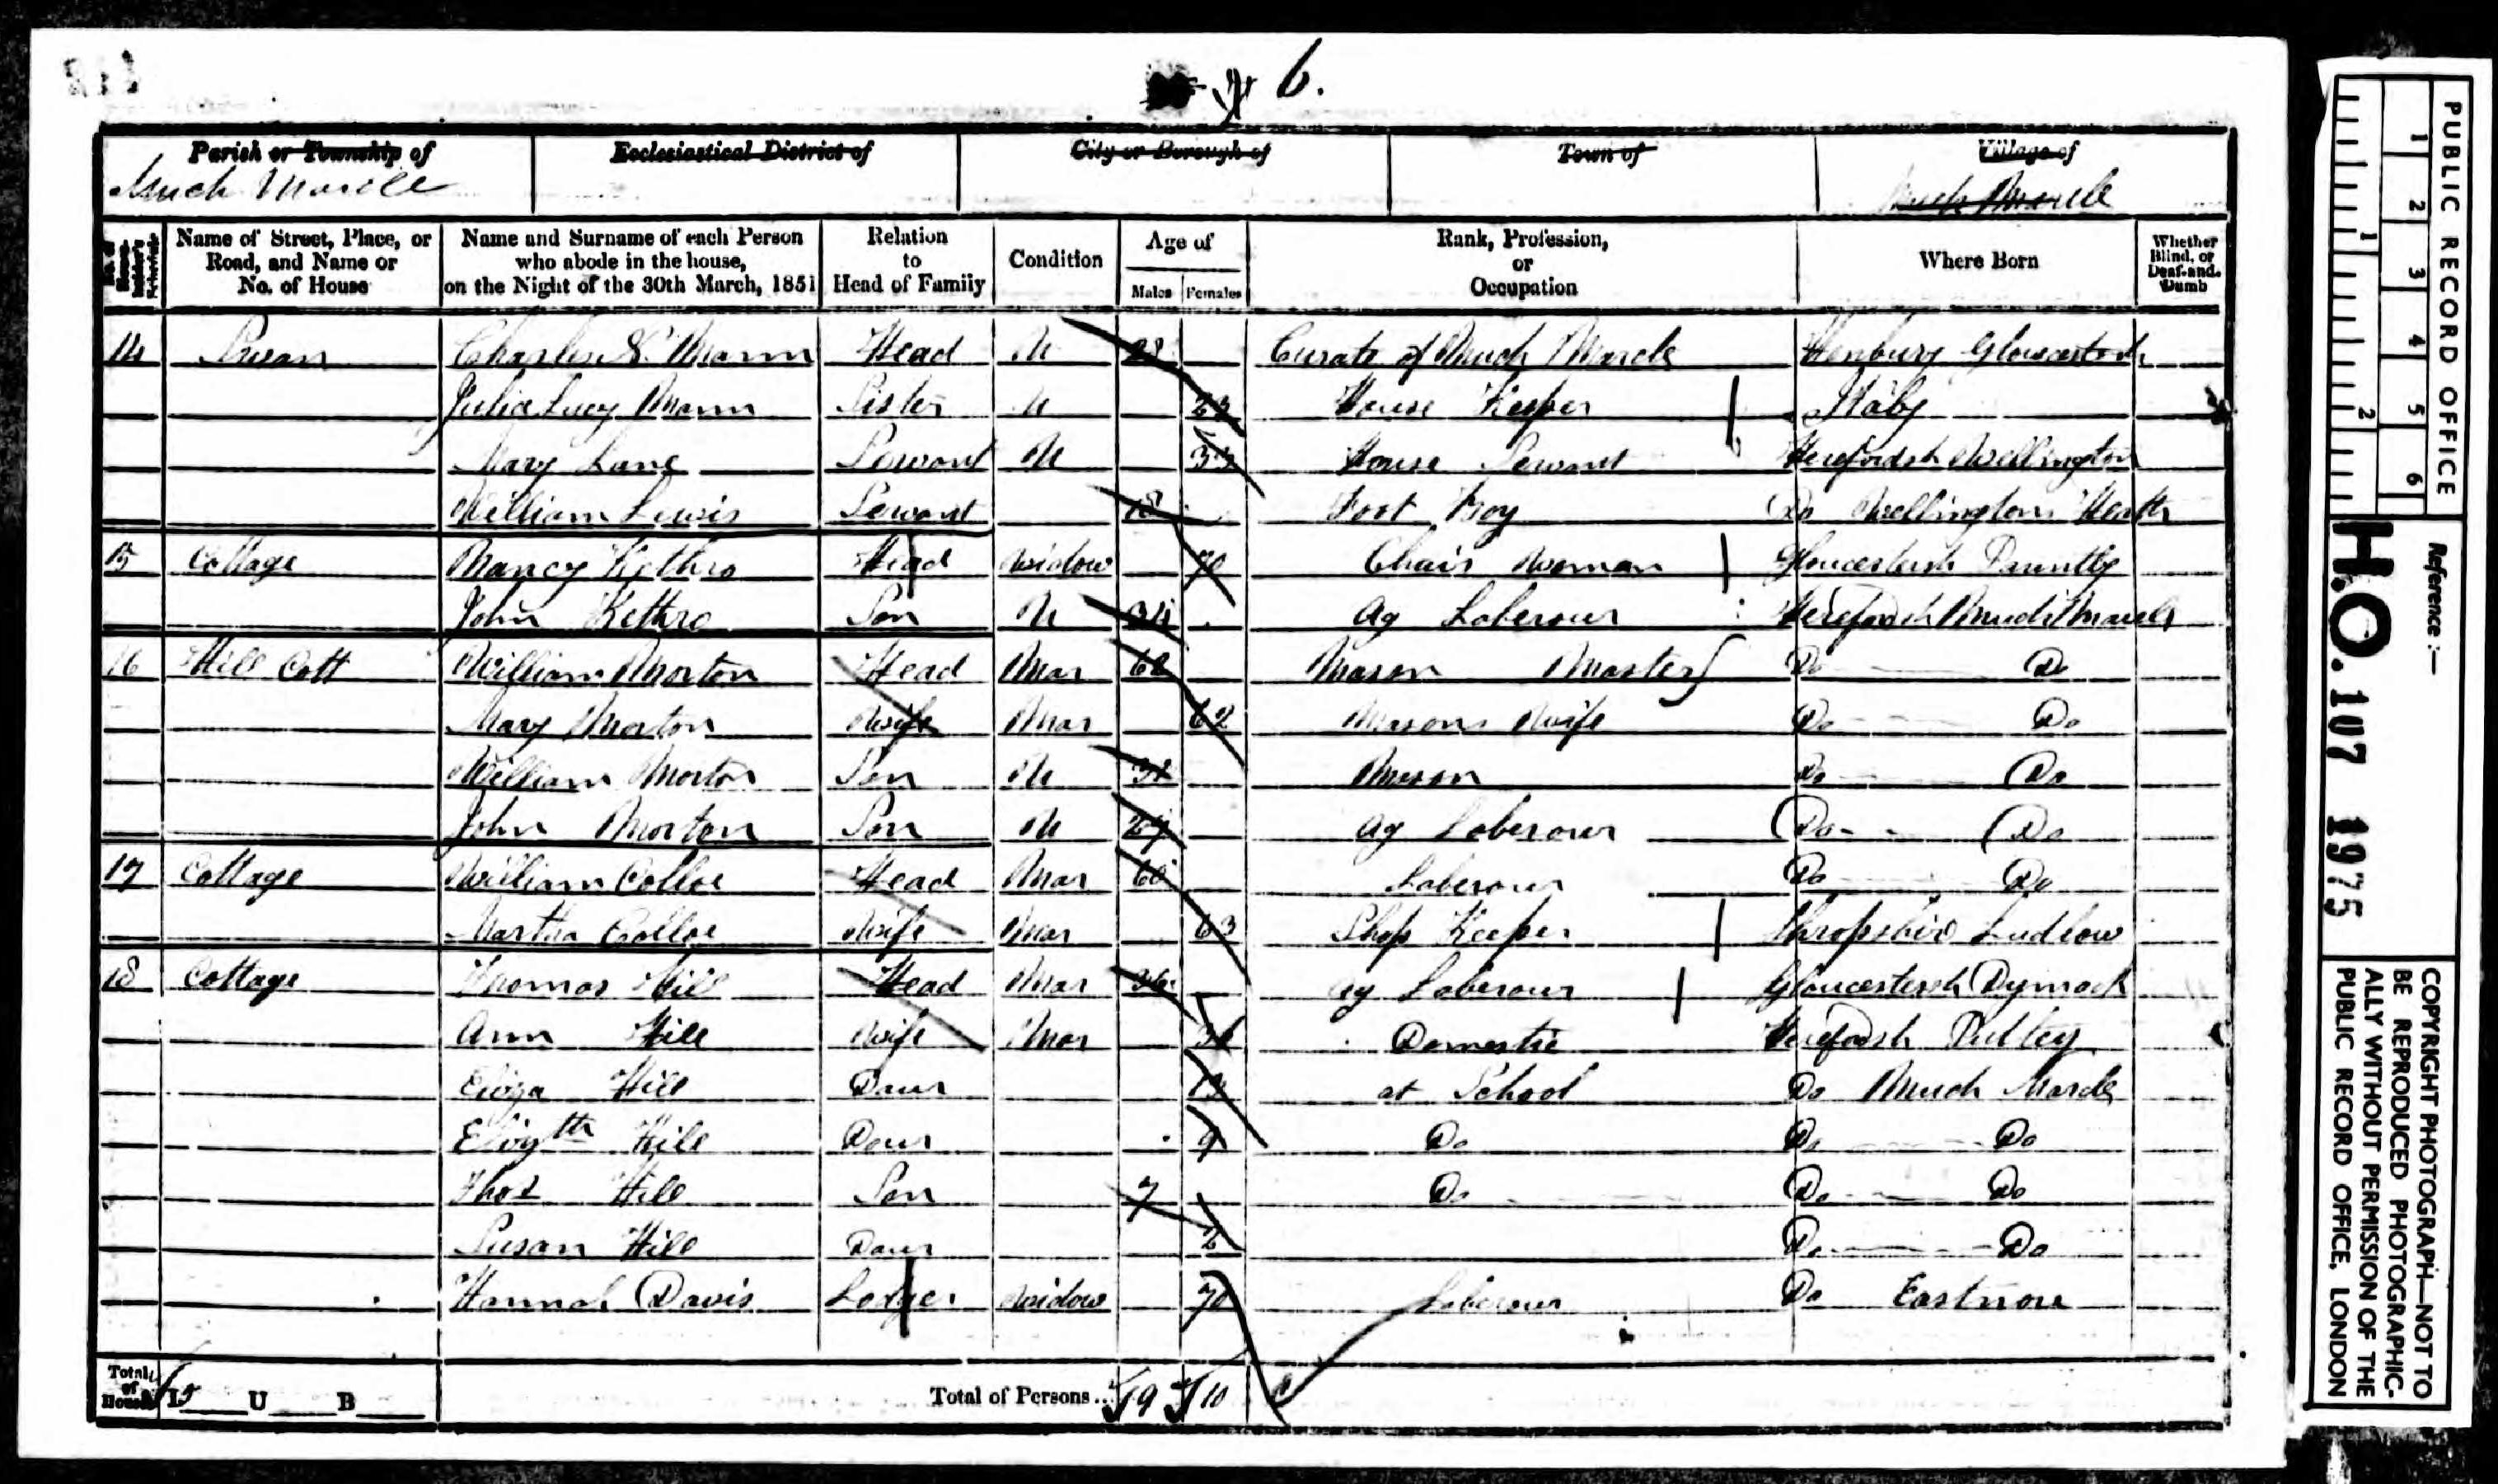 6.
Parish or Township of Ecclesiastical District of City or Borough of Town of Village of
Much Marcle Much Marcle
Name of Street, Place, or Road, and Name or No. of House
Name and Surname of each Person who abode in the house, on the Night of the 30th March, 1851
Relation to Head of Family
Condition
Age of
Males Females
Rank, Profession, or Occupation
Where Born
Whether Blind, or Deaf-and-Dumb
14 Charles N. Mann Head U 28 Curate of Much Marcle Henbury
Julia Lucy Mann Sister U House Keeper Italy
Mary Lane Servant U 33 House Servant Herefordsh Wellington
William Lewis Servant Foot Boy Do Wellington Heath
15 Cottage Nancy Kethro Head Widow 70 Chair Woman Gloucestersh Pauntly
John Kethro Son U 34 Ag Laberour Herefordsh Much Marcle
16 Hill Cott William Morton Head Mar Mason Master Do Do
Mary Morton Wife Mar 62 Masons Wife Do Do
William Morton Son U Mason Do Do
John Morton Son U Ag Laberour Do Do
17 Cottage William Head Mar Laberour Do Do
Martha Wife Mar 63 Shop Keeper Shropshire Ludlow
18 Cottage Thomas Hill Head Mar 36 Ag Laberour Gloucestersh Dymock
Ann Hill Wife Mar Domestic Herefordsh Putley
Eliza Hill Daur at School Do Much Marcle
Hill Daur 9 Do Do Do
Thos Hill Son 7 Do Do Do
Susan Hill Daur Do Do
Hannah Davis Lodger Widow 70 Laberour Do Eastnor
Total of Houses I 5 U B Total of Persons... 9 10
PUBLIC RECORD OFFICE
1 2 3 4 5 6
1 2
Reference:—
H.O. 107 1975
COPYRIGHT PHOTOGRAPH—NOT TO
BE REPRODUCED PHOTOGRAPHIC-
ALLY WITHOUT PERMISSION OF THE
PUBLIC RECORD OFFICE, LONDON